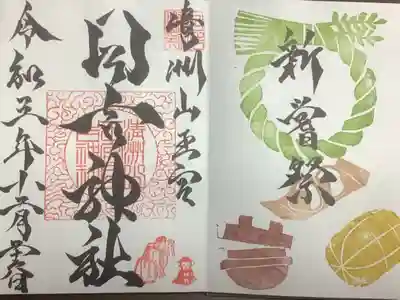 新嘗祭
清洲山王宮
日吉神社
令和五年十一月